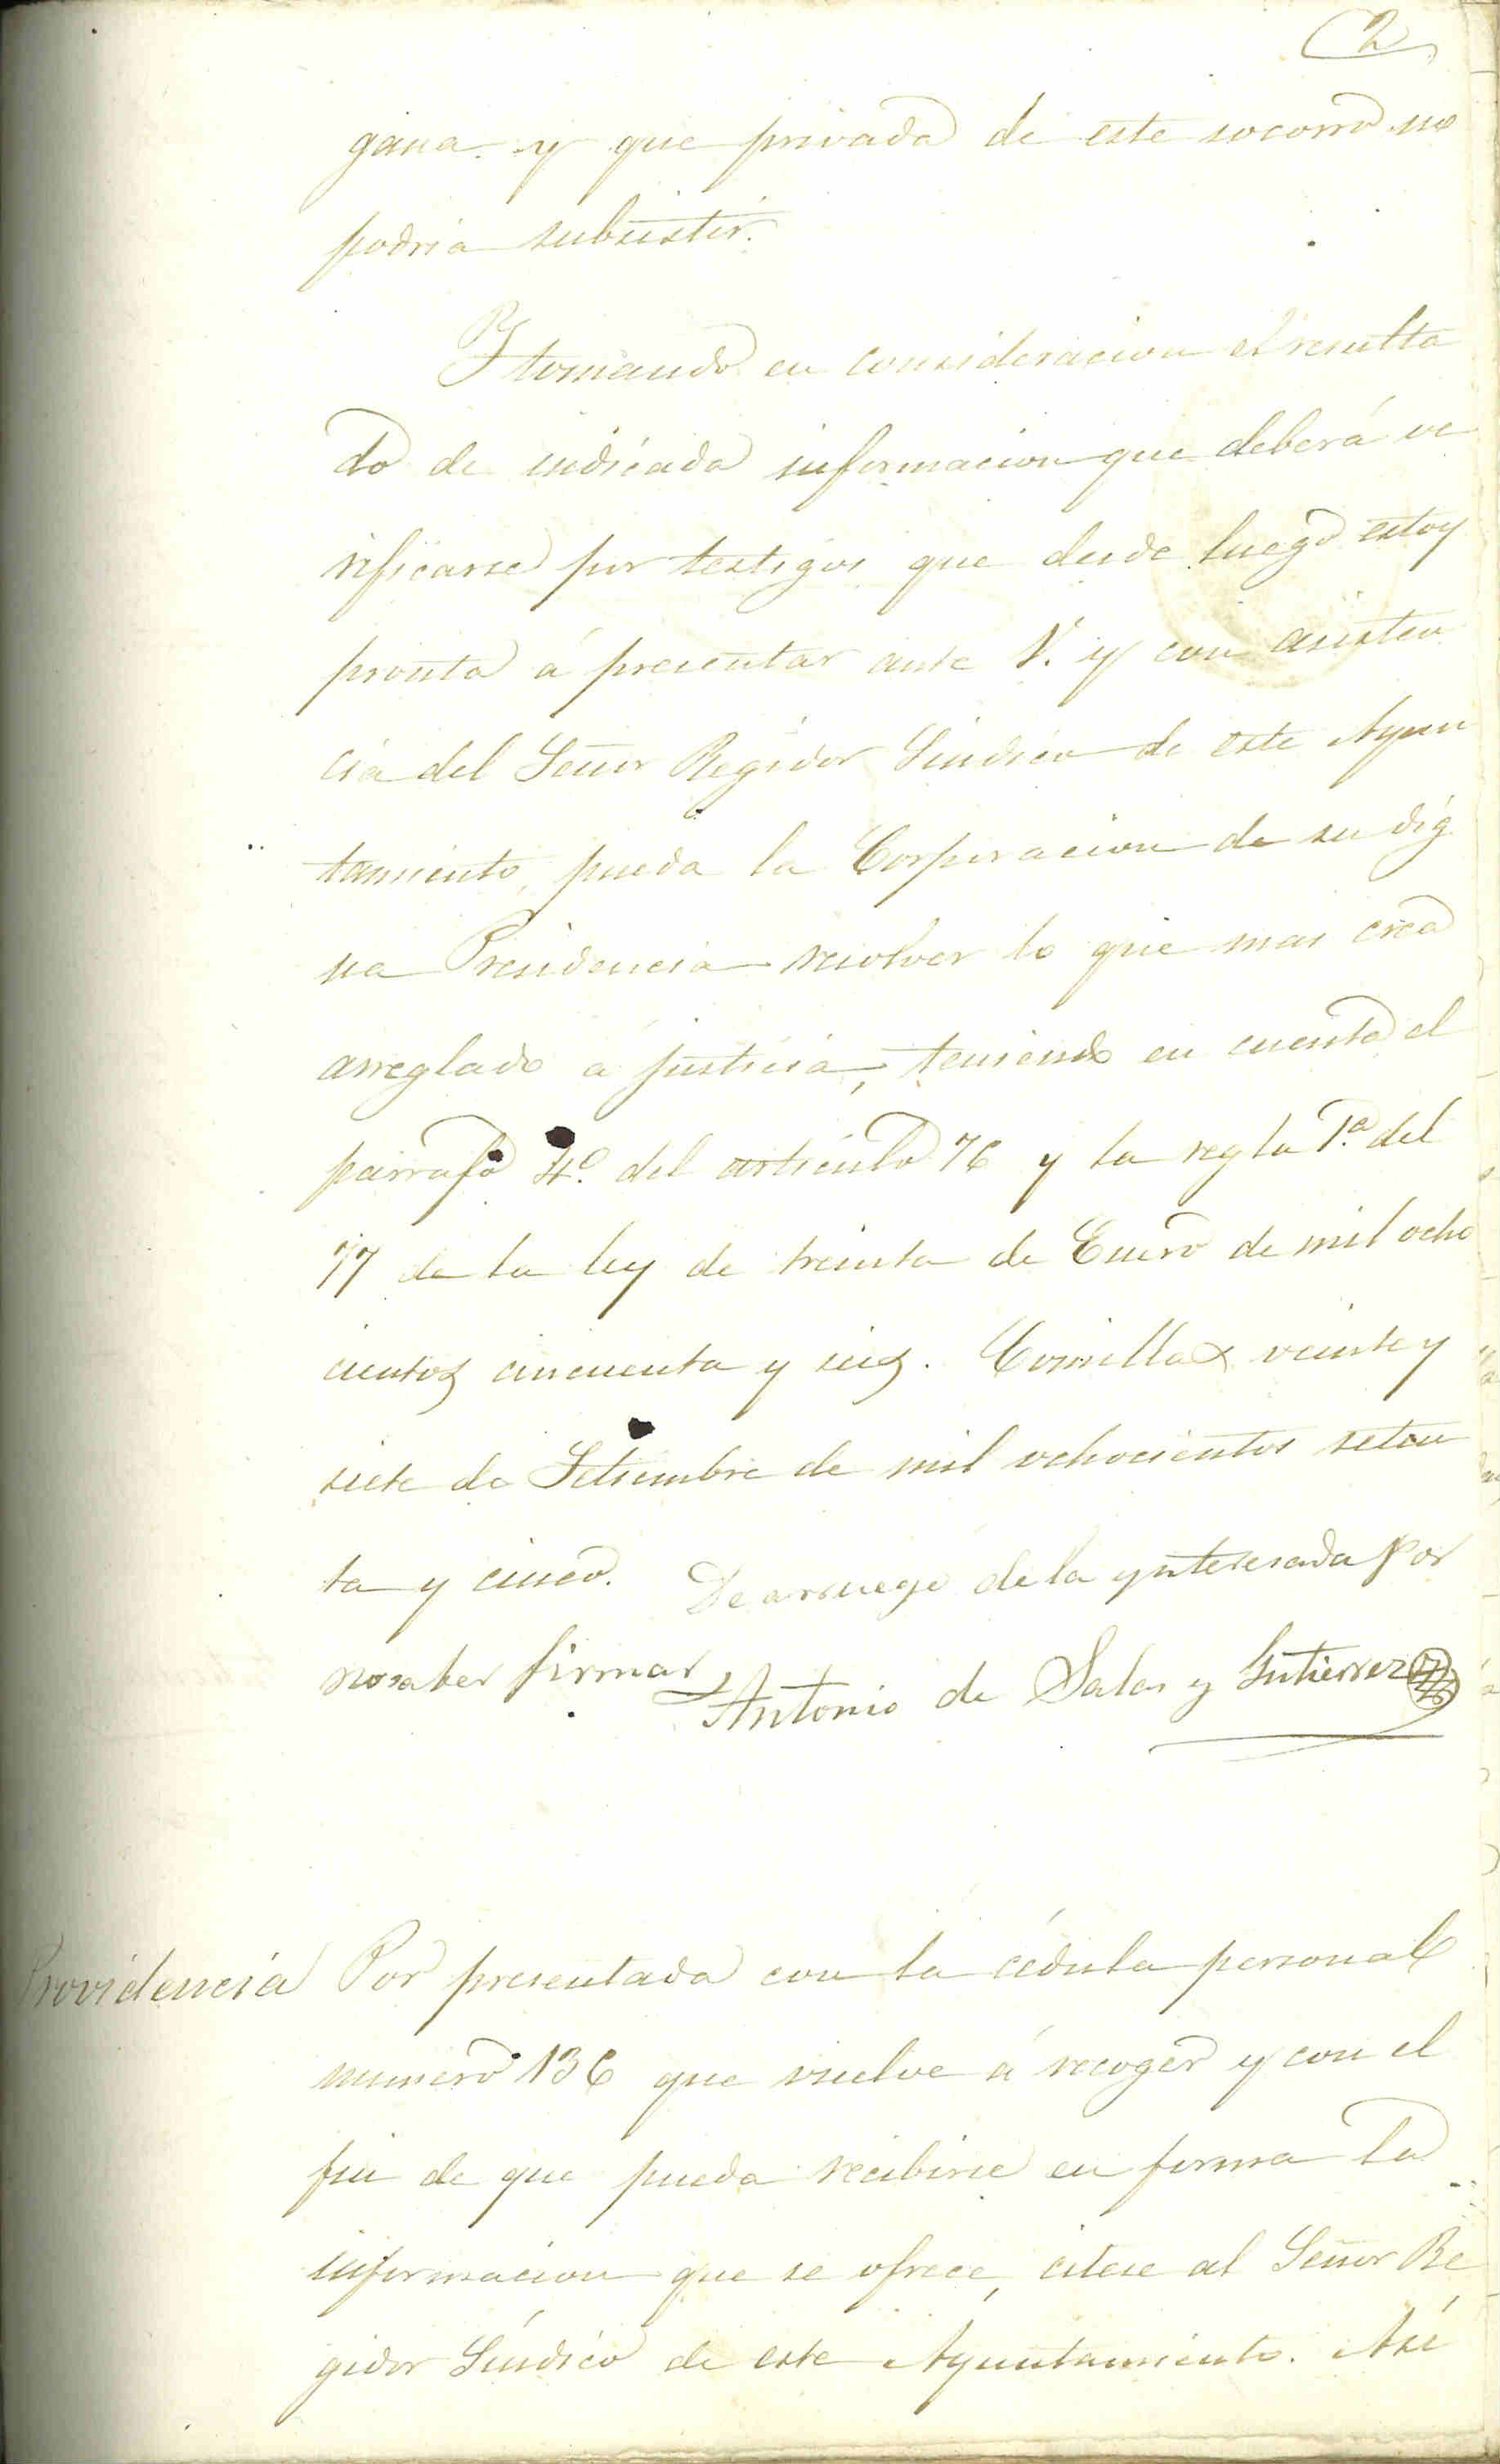 2
gana y que privada de este socorro no
podria subsistir.
Y tomando en consideracion el resulta
do de indicada informacion que deberá ve
rificarse por testigos que desde luego estoy
pronta á presentar ante V. y con asisten
cia del Señor Regidor Sindico de este Ayun
tamiento, pueda la Corporacion de su dig
na Presidencia resolver lo que mas crea
arreglado a justicia, teniendo en cuenta el
parrafo 4º. del artículo 76 y la regla 1ª. del
77 de la ley de treinta de Enero de mil ocho
cientos cincuenta y seis. Comillas veinte y
siete de Setiembre de mil ochocientos seten
ta y cinco. De arruego dela ynteresada por
nosaber firmar
Antonio de Salas y Gutierrez
Providencia Por presentada con la cédula personal
numero 136 que vuelve á recoger y con el
fin de que pueda recibirse en forma la
informacion que se ofrece, citese al Señor Re
gidor Síndico de este Ayuntamiento. Asi